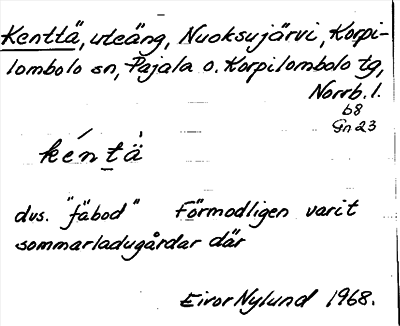 Kenttä, uteäng, Nuoksujärvi, Korpi-
lombolo sn, Pajala o. Korpilombolo tg,
Norrb. l.
b8
Gn 23
kén̲t̀ä
dvs. "fäbod" Förmodligen varit
sommarladugårdar där
Eivor Nylund 1968.